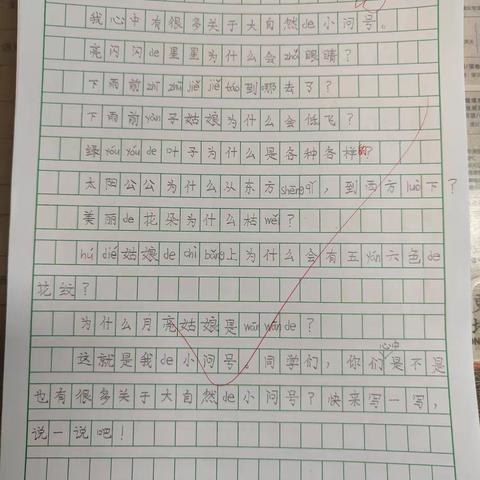 我心中有很多关于大自然de小问号。
亮闪闪de星星为什么会zhǎ眼睛?
下雨前zhī zhī jiě jiě táo到哪去了?
下雨前yàn子姑娘为什么会低飞?
绿yóu yóu de叶子为什么是各种各样的?
太阳公公为什么从东方shēng qǐ,到西方luò下?
美丽de花朵为什么枯wěi?
hú dié姑娘de chì bǎng上为什么会有五yán六色de
花纹?
为什么月亮姑娘是wān wān de?
这就是我de小问号。同学们,你们心中是不是
也有很多关于大自然de小问号?快来写一写,
说一说吧!